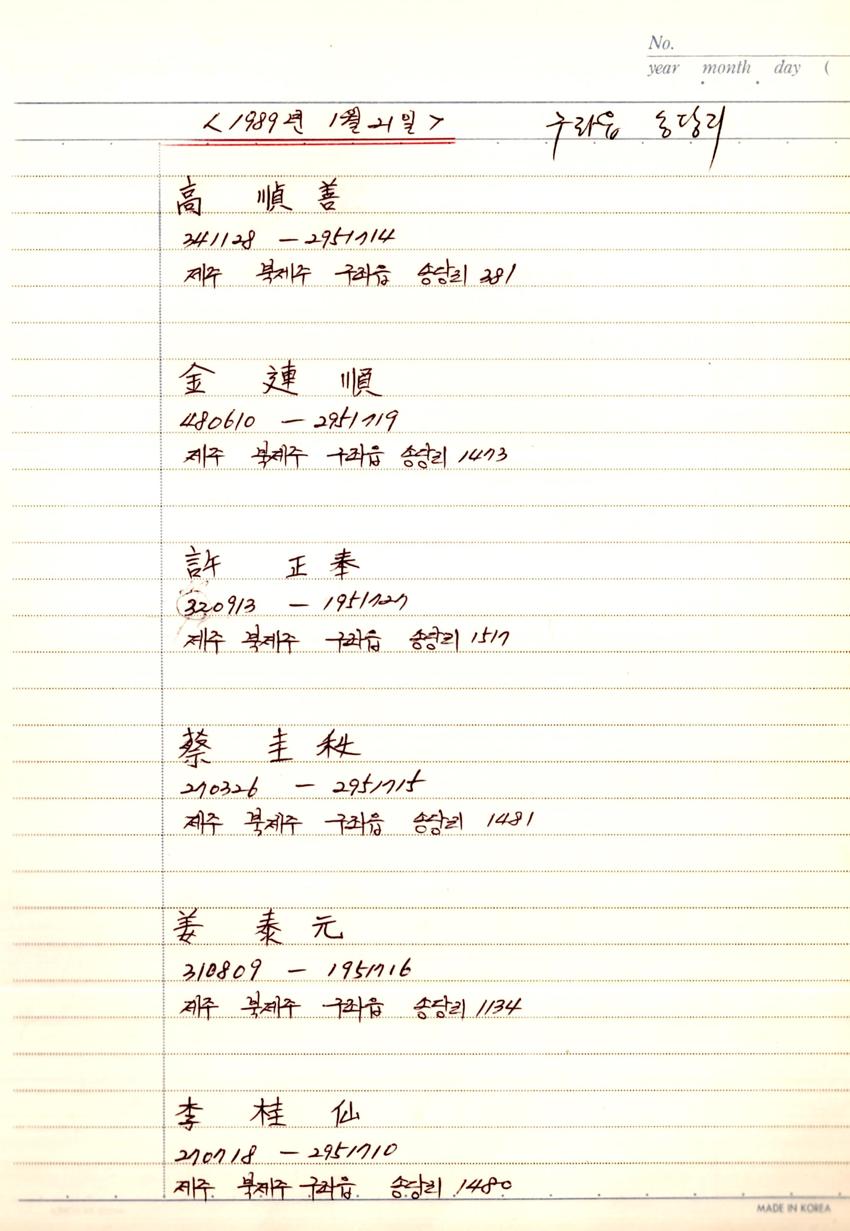 No.
year month day (
<1989년 1월 21일> 구좌읍 송당리
高 順善
341128 - 2951714
제주 북제주 구좌읍 송당리 381
金 連 順
480610 - 2951719
제주 북제주 구좌읍 송당리 1473
許 正奉
320913 - 1951727
제주 북제주 구좌읍 송당리 1517
蔡 圭
270326 - 2951715
제주 북제주 구좌읍 송당리 1481
姜 泰元
310809 - 1951716
제주 북제주 구좌읍 송당리 1134
李 桂 仙
270718 - 2951710
제주 북제주 구좌읍 송당리 1480
MADE IN KOREA